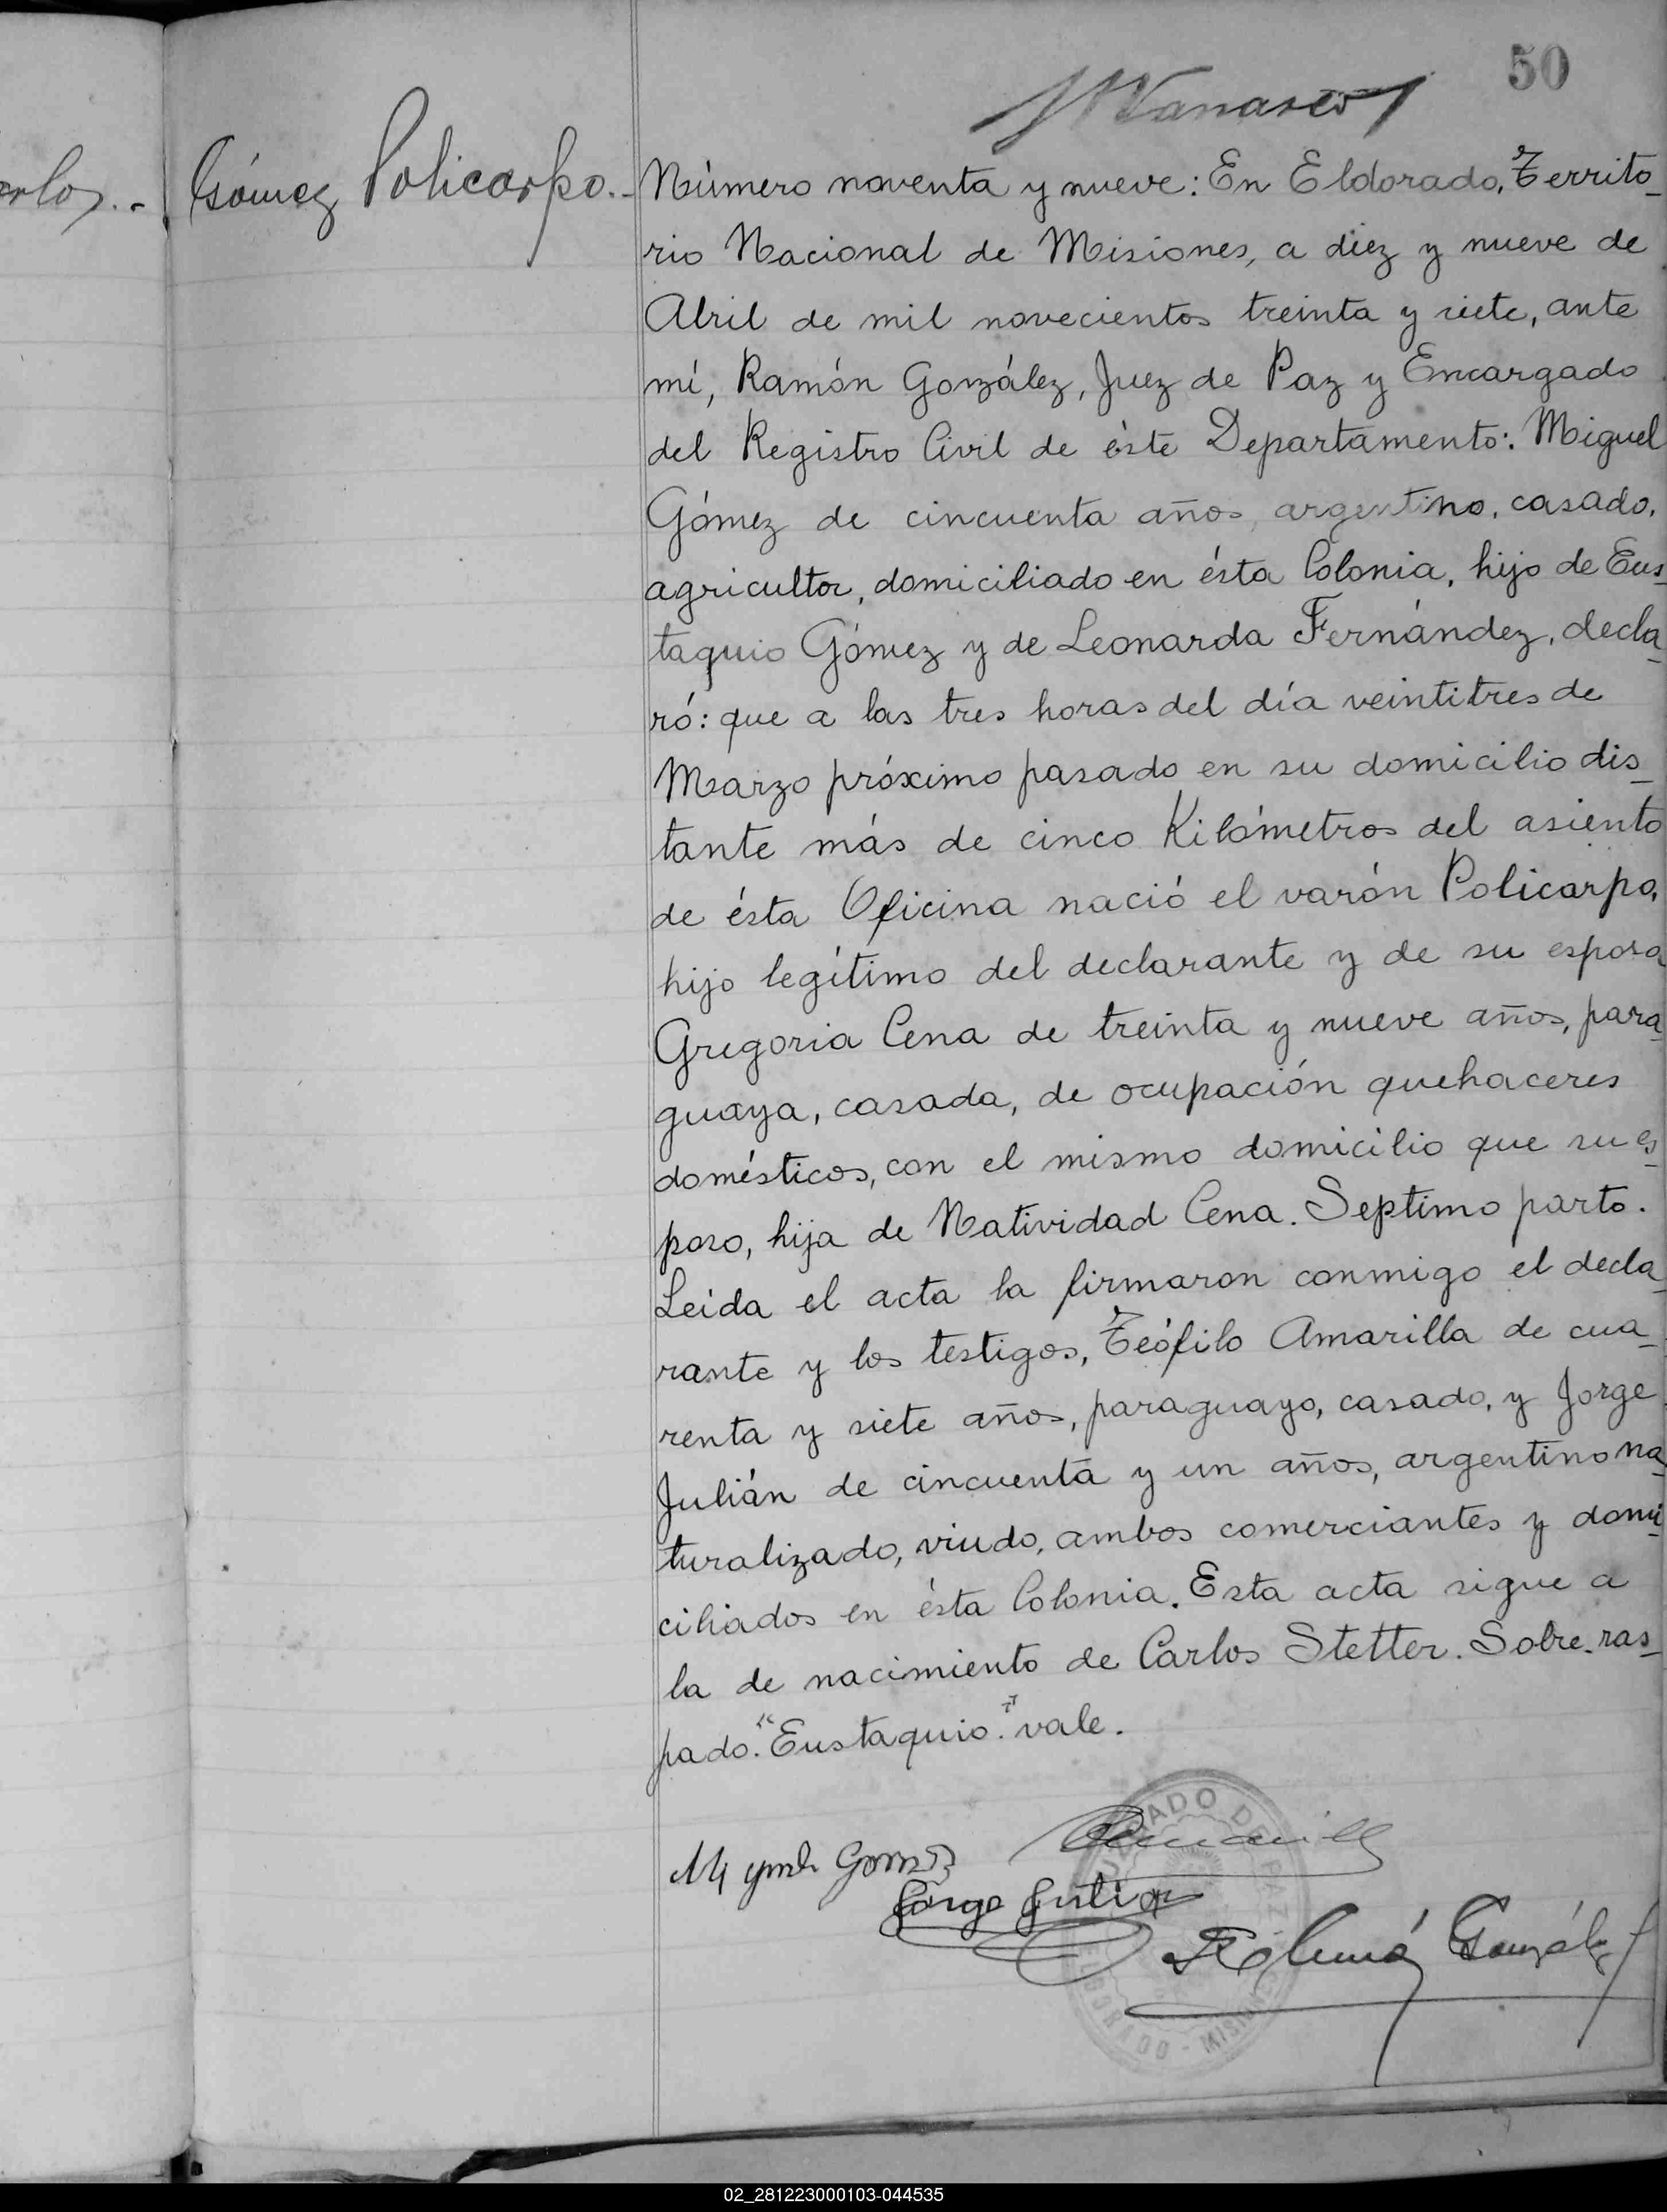 50
Gómez Policarpo.-
Número noventa y nueve: En Eldorado, Territo-
rio Nacional de Misiones, a diez y nueve de
Abril de mil novecientos treinta y siete, ante
mí, Ramón González, Juez de Paz y Encargado
del Registro Civil de éste Departamento: Miguel
Gómez de cincuenta años, argentino, casado,
agricultor, domiciliado en ésta Colonia, hijo de Eus-
taquio Gómez y de Leonarda Fernández, decla-
ró: que a las tres horas del día veintitres de
Marzo próximo pasado en su domicilio dis-
tante más de cinco Kilómetros del asiento
de ésta Oficina nació el varón Policarpo,
hijo legítimo del declarante y de su esposa
Gregoria Cena de treinta y nueve años, para-
guaya, casada, de ocupación quehaceres
domésticos, con el mismo domicilio que su es-
poso, hija de Natividad Cena. Septimo parto.
Leída el acta la firmaron conmigo el decla-
rante y los testigos, Teófilo Amarilla de cua-
renta y siete años, paraguayo, casado, y Jorge
Julián de cincuenta y un años, argentino na-
turalizado, viudo, ambos comerciantes y domi-
ciliados en ésta Colonia. Esta acta sigue a
la de nacimiento de Carlos Stetter. Sobre-ras-
pado: "Eustaquio": vale.
JUZGADO DE PAZ
ELDORADO - MISIONES
Jorge Julian
Ramón González
02_281223000103-044535